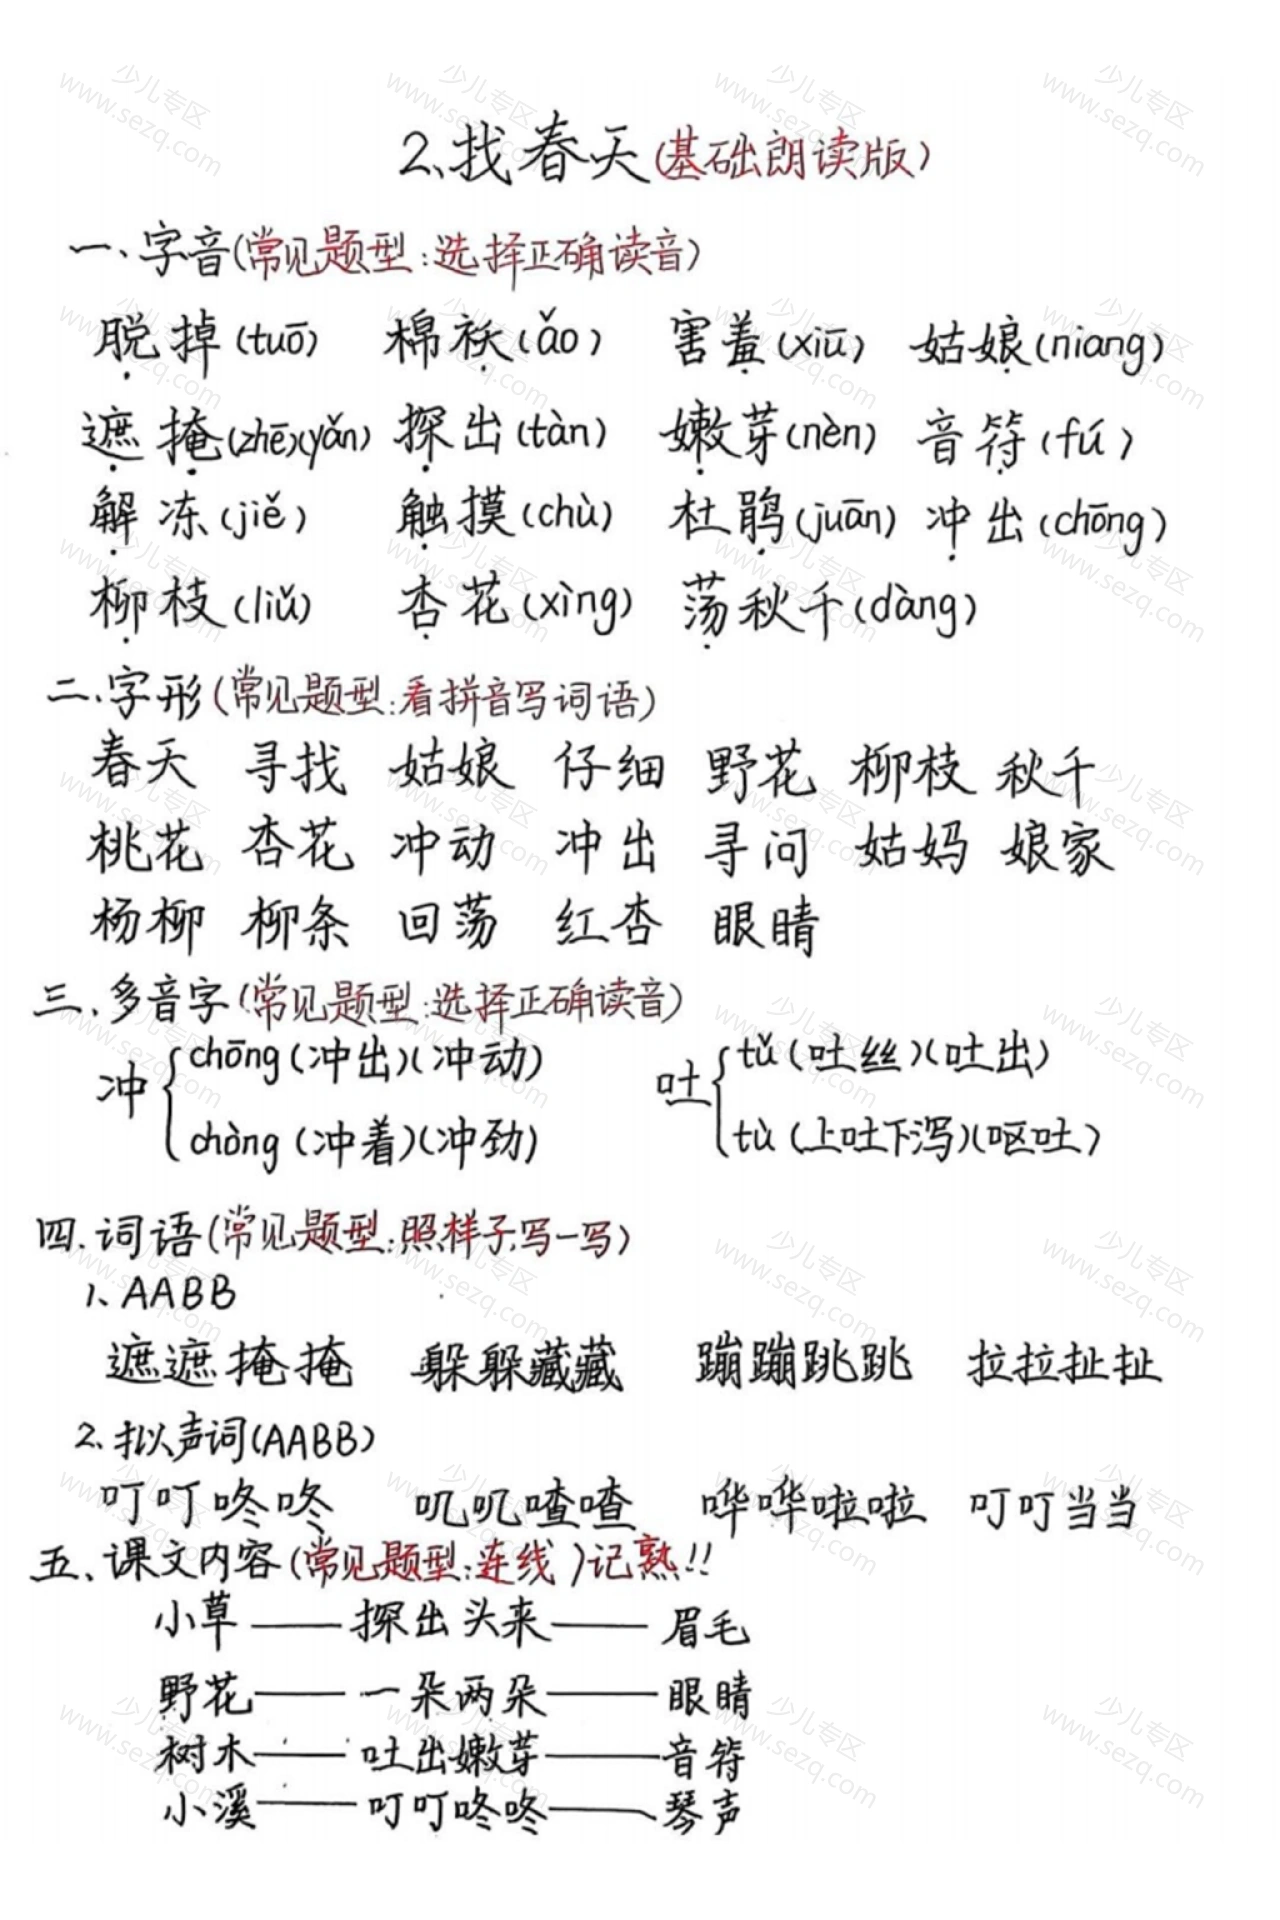 2、找春天(基础朗读版)
一、字音(常见题型:选择正确读音)
脱掉(tuō) 棉袄(ǎo) 害羞(xiū) 姑娘(niang)
遮掩(zhē)(yǎn) 探出(tàn) 嫩芽(nèn) 音符(fú)
解冻(jiě) 触摸(chù) 杜鹃(juān) 冲出(chōng)
柳枝(liǔ) 杏花(xìng) 荡秋千(dàng)
二、字形(常见题型:看拼音写词语)
春天 寻找 姑娘 仔细 野花 柳枝 秋千
桃花 杏花 冲动 冲出 寻问 姑妈 娘家
杨柳 柳条 回荡 红杏 眼睛
三、多音字(常见题型:选择正确读音)
冲 chōng(冲出)(冲动) 吐 tǔ(吐丝)(吐出)
chòng(冲着)(冲劲) tù(上吐下泻)(呕吐)
四、词语(常见题型:照样子,写一写)
1、AABB
遮遮掩掩 躲躲藏藏 蹦蹦跳跳 拉拉扯扯
2、拟声词(AABB)
叮叮咚咚 叽叽喳喳 哗哗啦啦 叮叮当当
五、课文内容(常见题型:连线)记熟!!
小草——探出头来——眉毛
野花——一朵两朵——眼睛
树木——吐出嫩芽——音符
小溪——叮叮咚咚——琴声
少儿专区
www.sezq.com